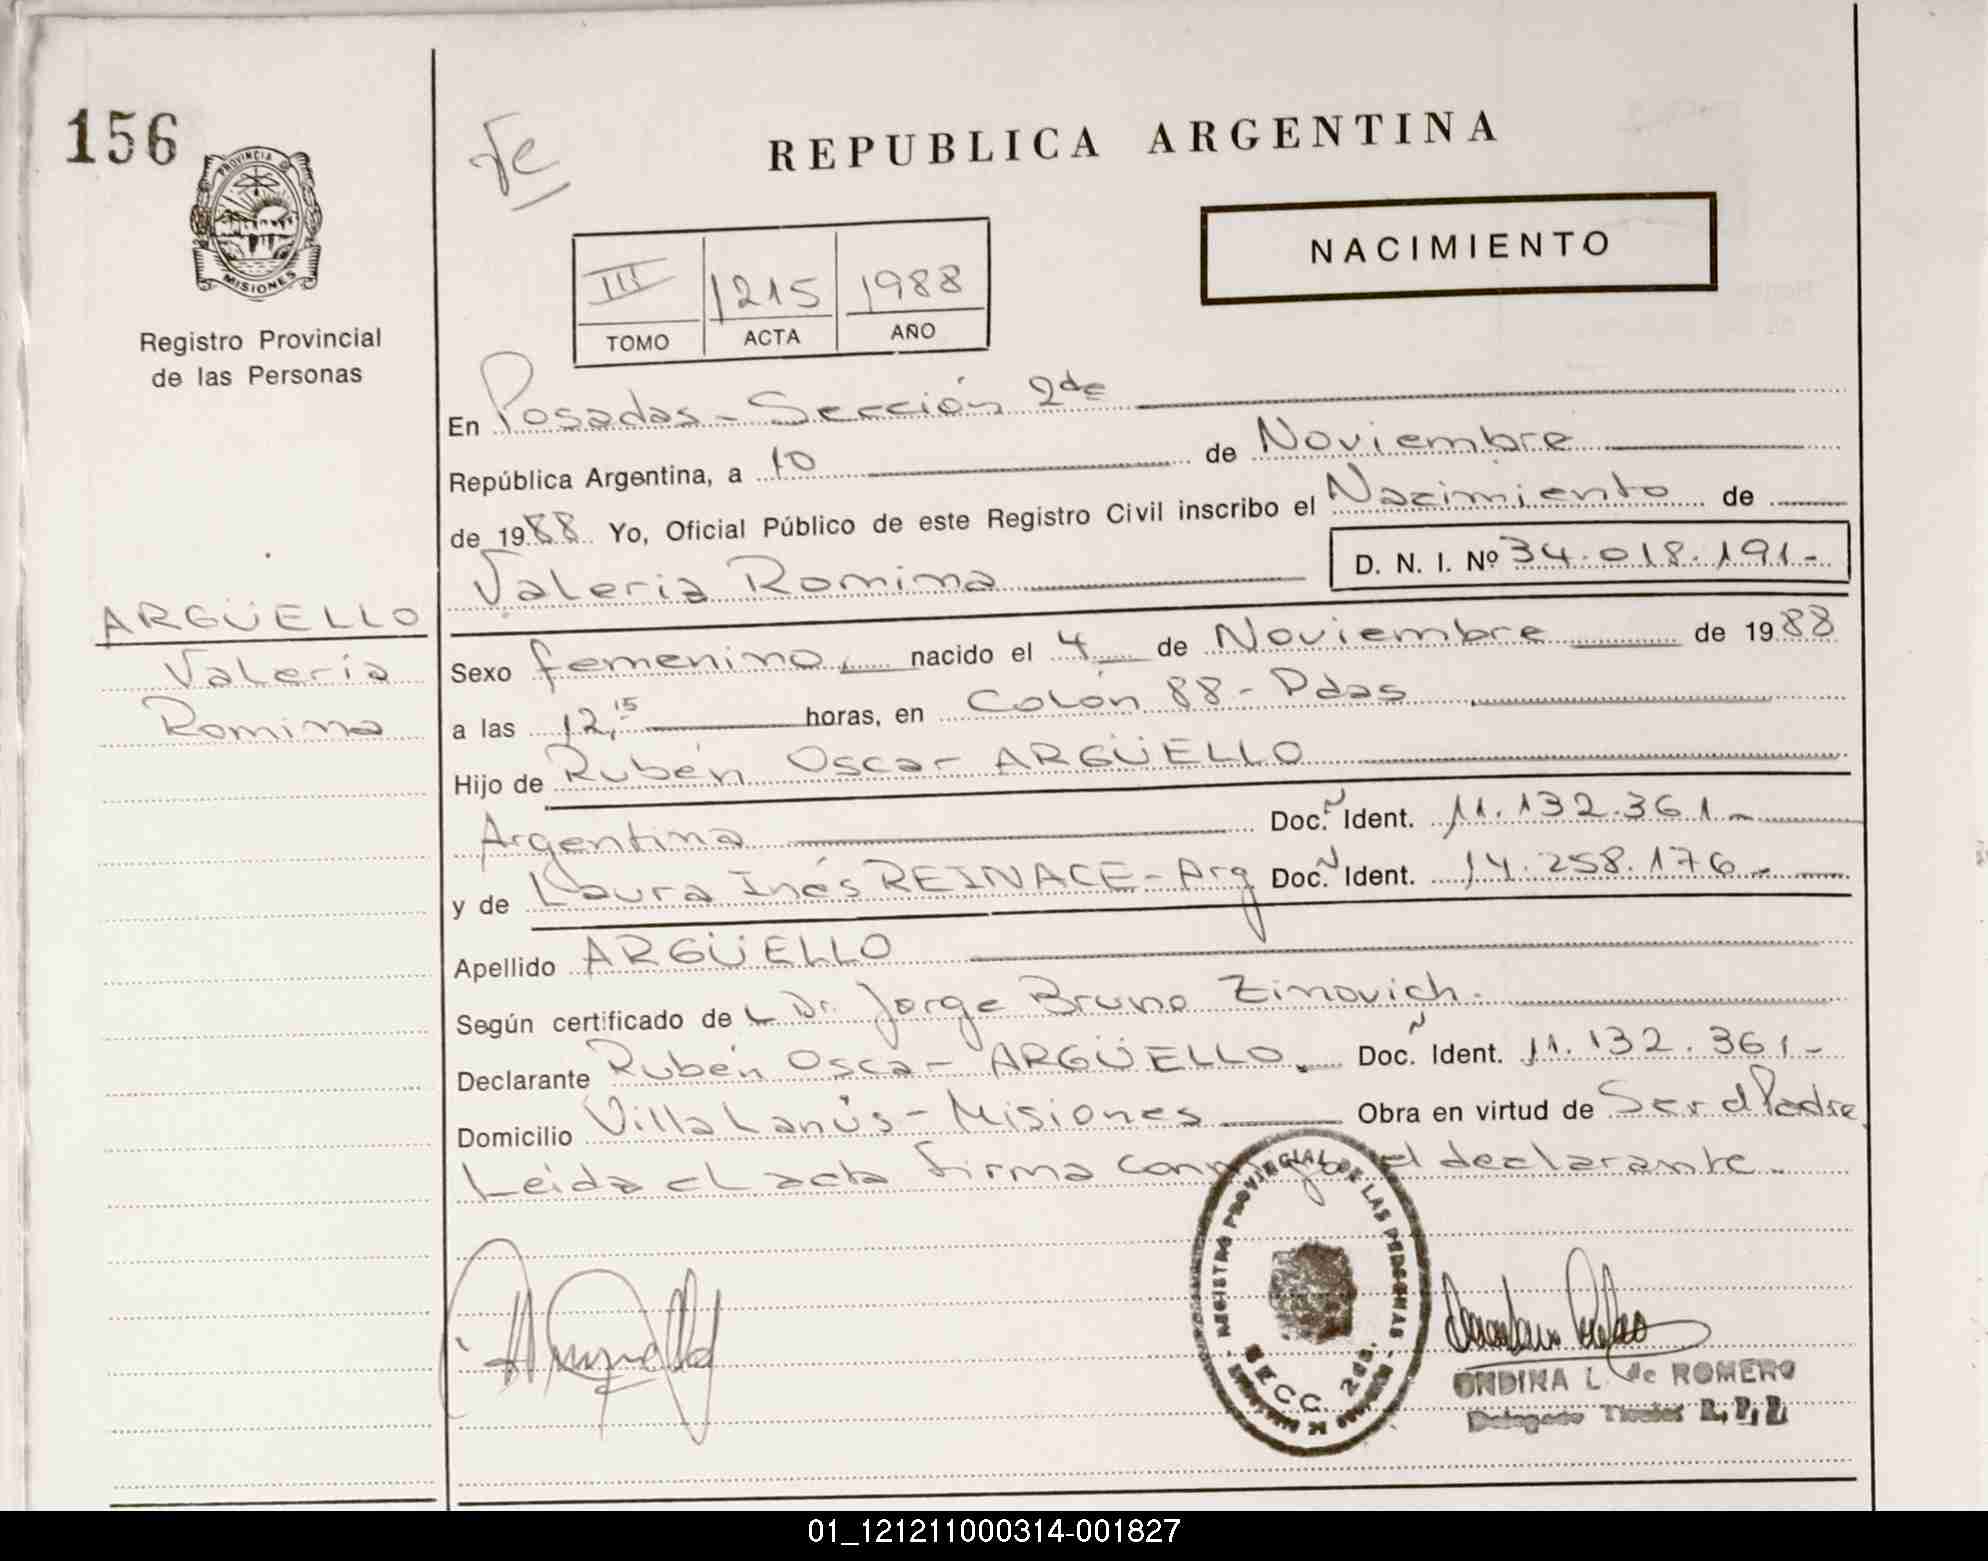 156
PROVINCIA D
MISIONES
Registro Provincial
de las Personas
ARGÜELLO
Valeria
Romina
REPUBLICA ARGENTINA
NACIMIENTO
III 1215 1988
TOMO ACTA AÑO
En Posadas - Sección 2da
República Argentina, a 10 de Noviembre
de 1988 Yo, Oficial Público de este Registro Civil inscribo el Nacimiento de
Valeria Romina D. N. I. Nº 34.018.191.-
Sexo femenino, nacido el 4 de Noviembre de 1988
a las 12,15 horas, en Colón 88 - Pdas
Hijo de Rubén Oscar ARGÜELLO
Argentina Doc. Ident. 11.132.361.-
y de Laura Inés REINACE - Arg Doc. Ident. 14.258.176.-
Apellido ARGÜELLO
Según certificado de L Dr. Jorge Bruno Zinovich.
Declarante Rubén Oscar ARGÜELLO. Doc. Ident. 11.132.361.-
Domicilio Villa Lanús - Misiones Obra en virtud de Ser el Padre.
Leida el acta firma conmigo el declarante.
REGISTRO PROVINCIAL DE LAS PERSONAS
SECC. 2da.
ONDINA L. de ROMERO
Delegado Titular R.P.P.
01_121211000314-001827